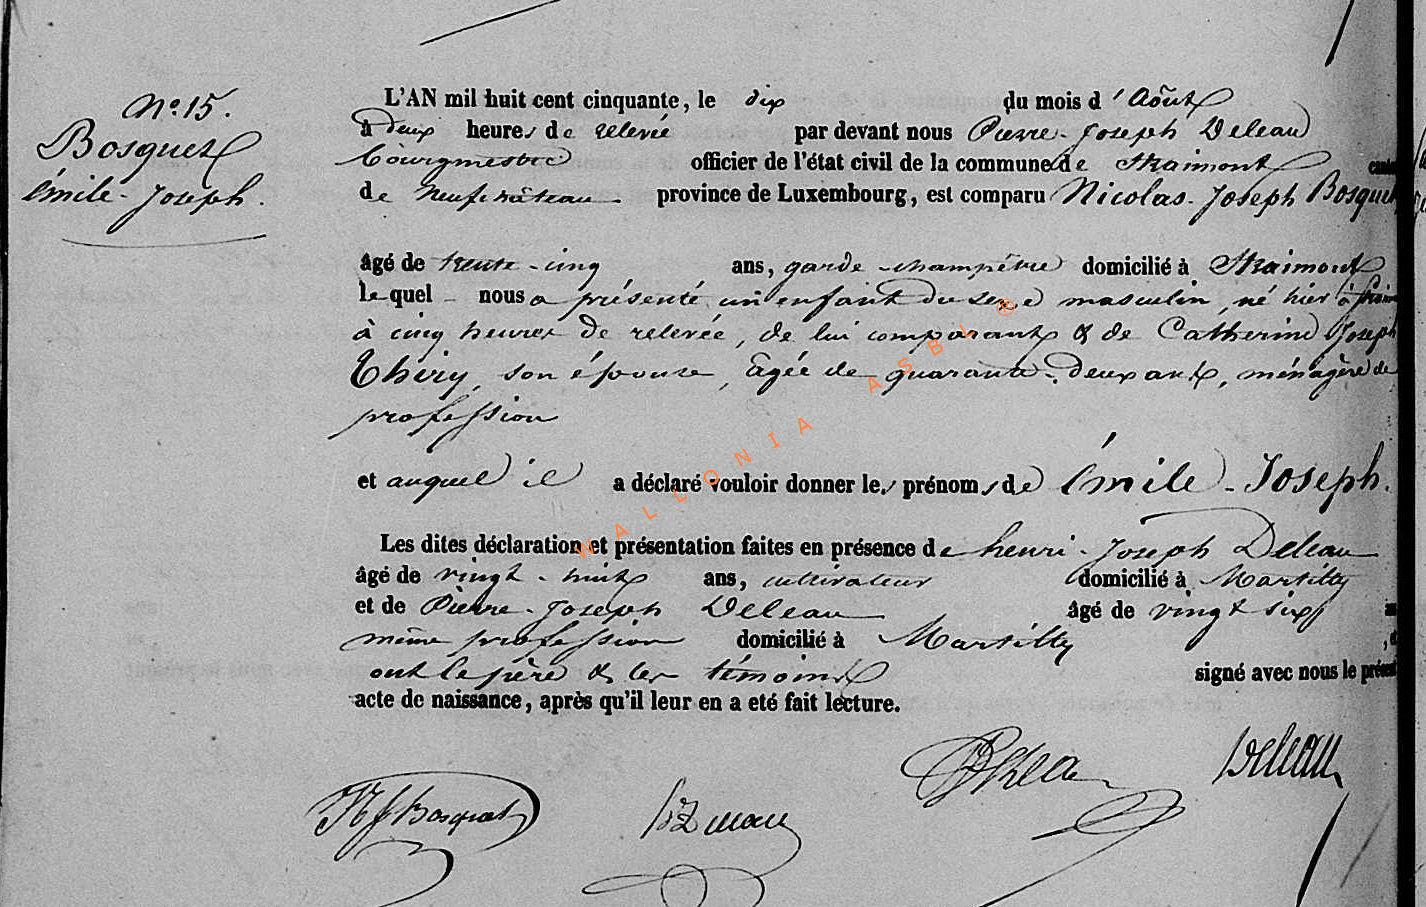 N° 15.
Bosquet
émile-Joseph.
L'AN mil huit cent cinquante, le dix du mois d'Août
à deux heures de relevée par devant nous Pierre-Joseph Deleau
bourgmestre officier de l'état civil de la commune de Straimont
de Neufchâteau province de Luxembourg, est comparu Nicolas-Joseph Bosquet
âgé de trente-cinq ans, garde-champêtre domicilié à Straimont
lequel nous a présenté un enfant du sexe masculin, né hier à
à cinq heures de relevée, de lui comparant & de Catherine Joseph
Thiry, son épouse, âgée de quarante-deux ans, ménagère de
profession
et auquel il a déclaré vouloir donner les prénoms de émile-Joseph.
Les dites déclaration et présentation faites en présence de henri-Joseph Deleau
âgé de vingt-huit ans, cultivateur domicilié à Martilly
et de Pierre-Joseph Deleau âgé de vingt six
même profession domicilié à Martilly
ont le père & les témoins signé avec nous le présent
acte de naissance, après qu'il leur en a eté fait lecture.
Deleau
NJ Bosquet
WALLONIA ASBL ®